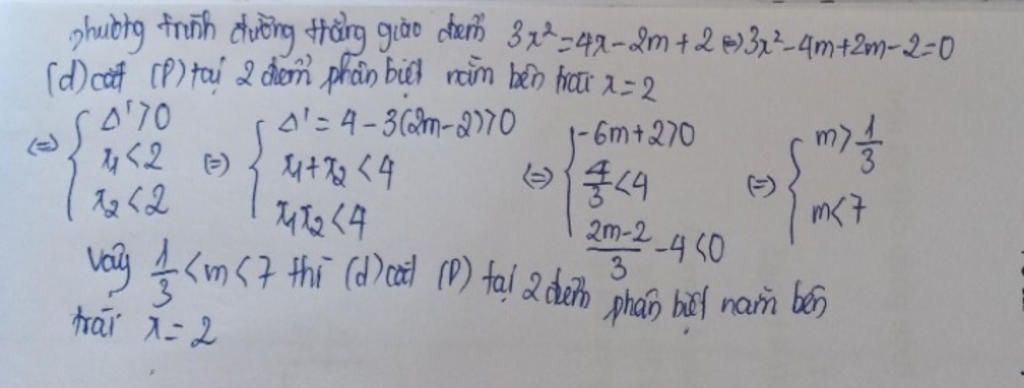 phương trình đường thẳng giao điểm 3x² = 4x - 2m + 2 ⇔ 3x² - 4m + 2m - 2 = 0
(d) cắt (P) tại 2 điểm phân biệt nằm bên trái x = 2
⇔ { Δ' > 0 ⇔ { Δ' = 4 - 3(2m - 2) > 0 ⇔ { -6m + 2 > 0 ⇔ { m > 1/3
x₁ < 2 x₁ + x₂ < 4 4/3 < 4
x₂ < 2 x₁x₂ < 4 (2m - 2)/3 - 4 < 0 m < 7
Vậy 1/3 < m < 7 thì (d) cắt (P) tại 2 điểm phân biệt nằm bên
trái x = 2